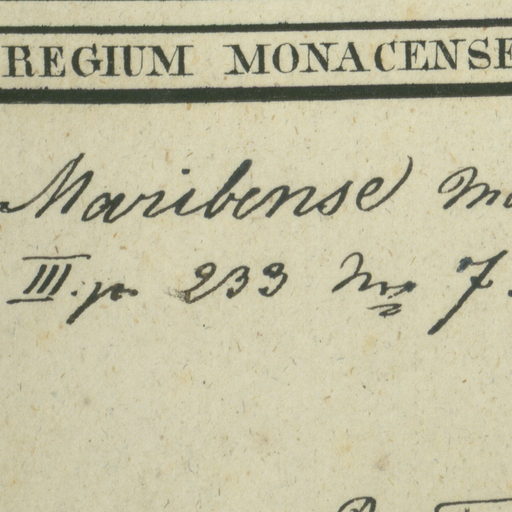 REGIUM MONACENSE
Maribense
III. p. 233 Nro 7.